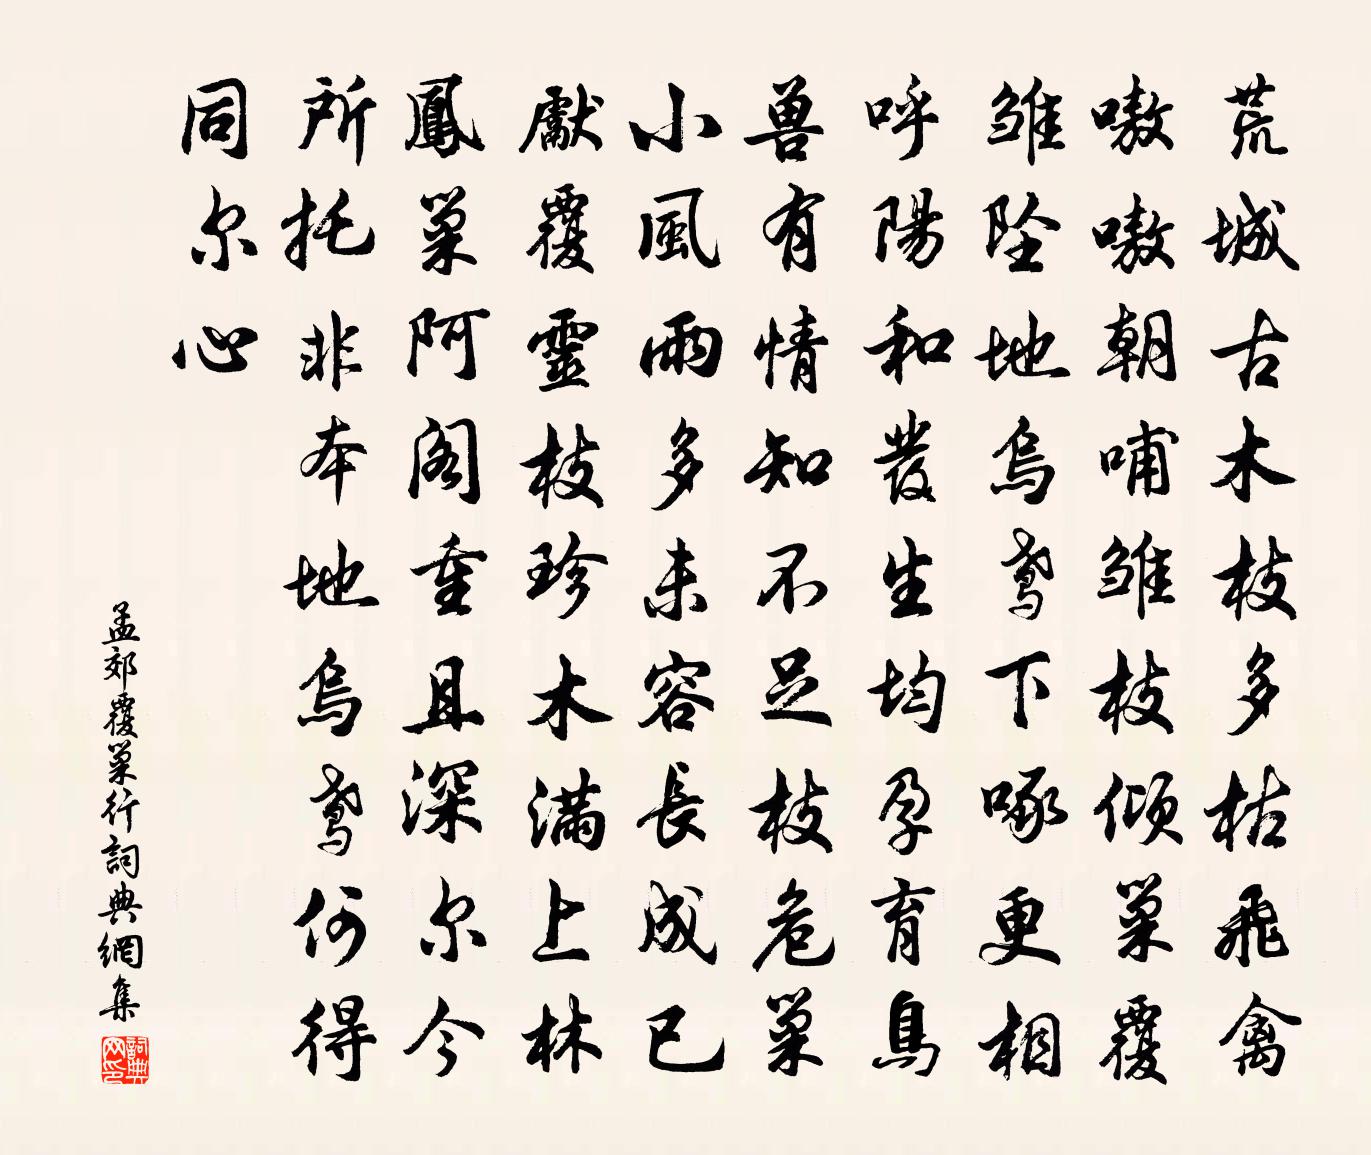 荒城古木枝多枯飛禽
嗷嗷朝哺雏枝傾巢覆
雏坠地烏鸢下啄更相
呼陽和發生均孕育鳥
兽有情知不足枝危巢
小風雨多未容長成已
先覆靈枝珍木滿上林
鳳巢阿阁重且深尔今
所托非本地烏鸢何得
同尔心
孟郊覆巢行詞典網集
詞典网印